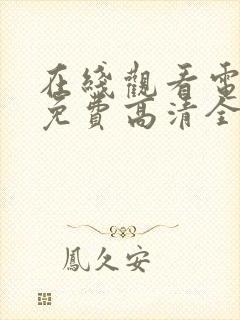 在綫觀看電
免費高清全
鳳久安